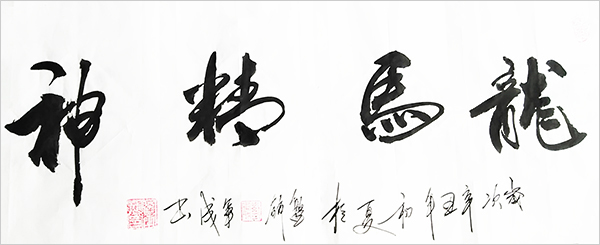 龍馬精神
歲次辛丑年初夏於
軍成書